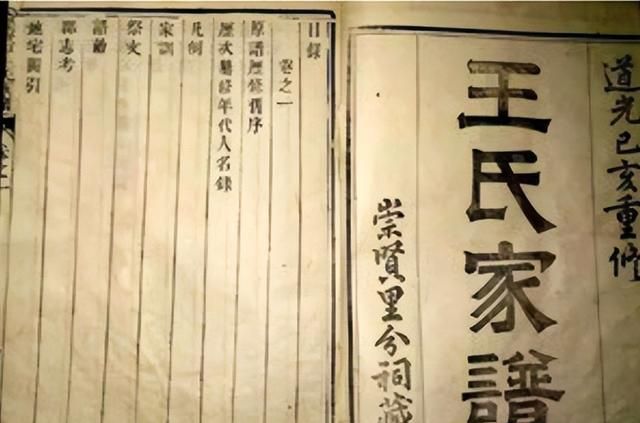 道光己亥重修
王氏家譜
崇賢里分祠藏
目錄
卷之一
原譜歷修舊序
歷次纂修年代人名錄
凡例
家訓
祭文
諡誥
郡志考